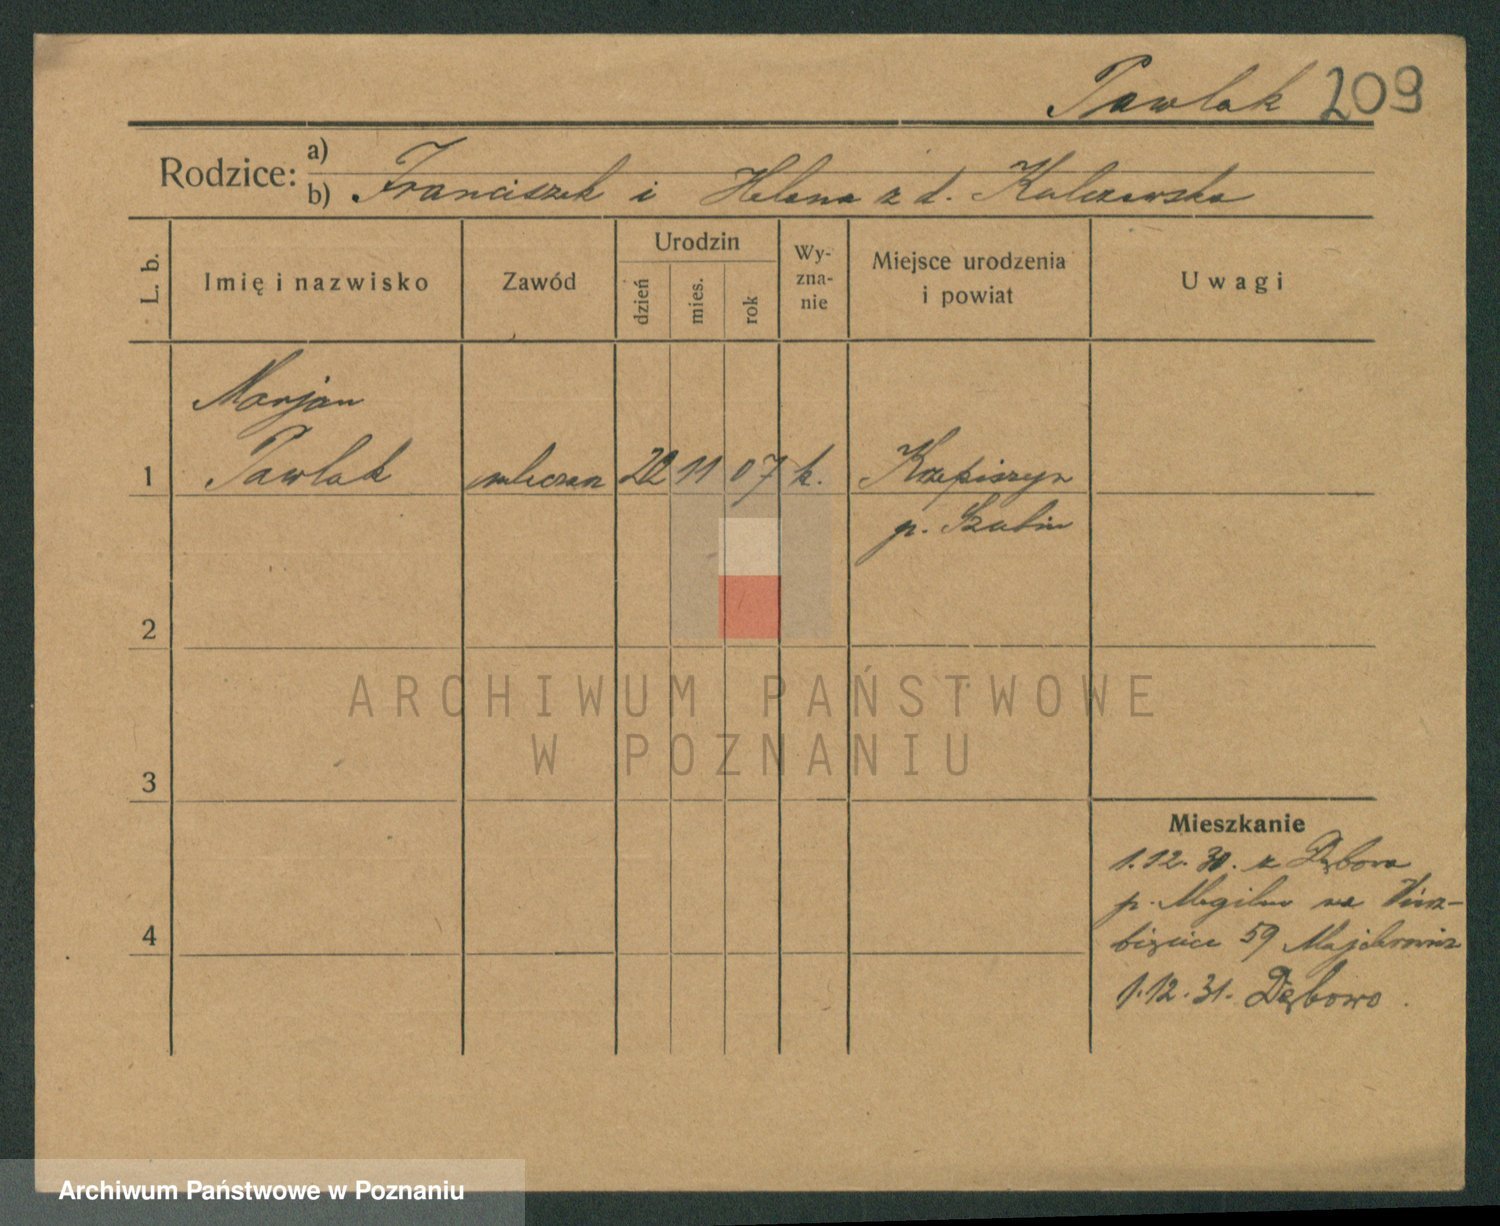 Pawlak 209
Rodzice: a)
b) Franciszek i Helena z d. Kulczewska
L. b.
Imię i nazwisko
Zawód
Urodzin
dzień
mies.
rok
Wy-
zna-
nie
Miejsce urodzenia
i powiat
Uwagi
Marjan
1 Pawlak mleczarz 22 11 07 k.
p. Szubin
2
3
4
Mieszkanie
1.12.30. z Dębowa
p. Mogilno na Wierz-
bięcice 59 Majchrowicz
1.12.31. Dębowo.
ARCHIWUM PAŃSTWOWE
W POZNANIU
Archiwum Państwowe w Poznaniu